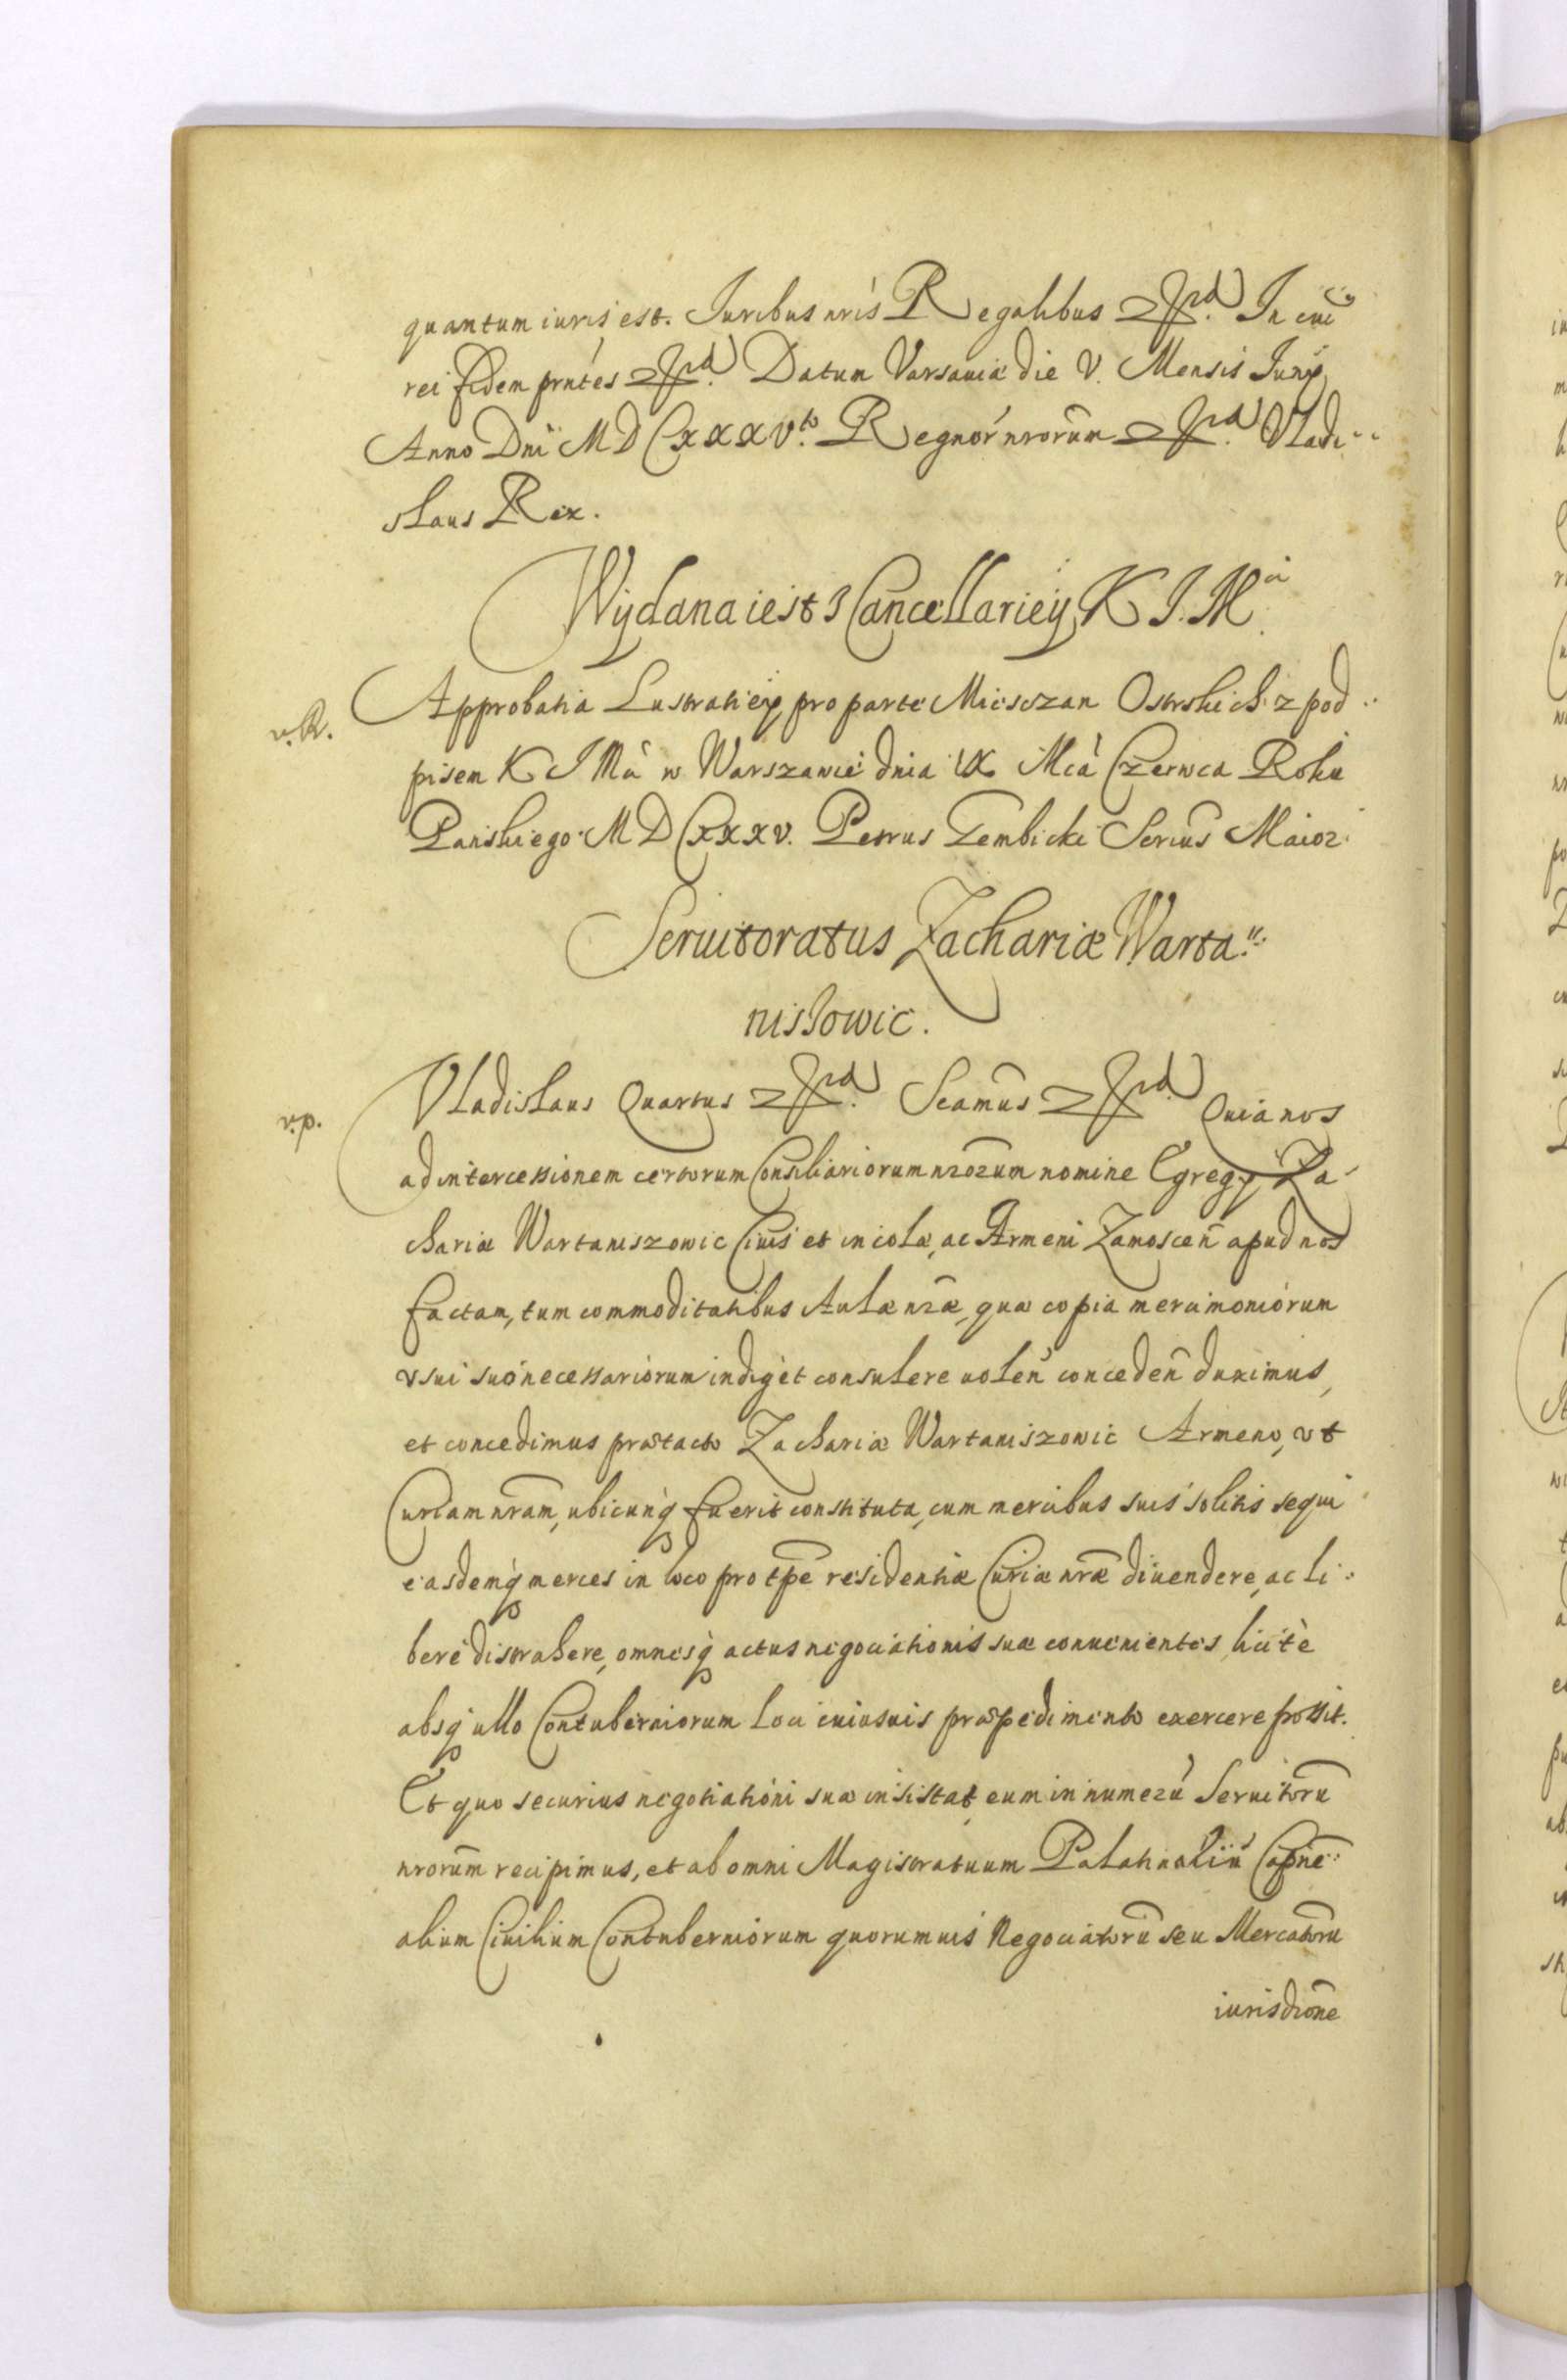 quantum iuris est. Iuribus nris Regalibus etc. In cuiꝰ
rei fidem prntes etc. Datum Varsaviæ die V. Mensis Iunij
Anno Dni MDCXXXVto. Regnor nrorum etc. Vladi
slaus Rex.
Wydana iest z Cancellariey K I. Mci
v. R. Approbatia Lustratiey pro parte Miesczan Ostrskich z pod
pisem K I Mci w Warszawie dnia IX Mca Czerwca Roku
Panskiego MDCXXXV. Petrus Gembicki Secrius Maior
Seruitoratus Zachariæ Warta
nissowic.
v. p. Vladislaus Quartus etc. Seamus etc. Quia nos
ad intercessionem certorum Consiliariorum nrorum nomine Egregij Za
chariæ Wartaniszowic Ciuis et incolæ, ac Armeni Zamoscen apud nos
factam, tum commoditatibus Aulæ nræ, quæ copia mercimoniorum
vsui suo necessariorum indiget consulere uolen conceden duximus,
et concedimus prætacto Zachariæ Wartaniszowic Armeno, vt
Curiam nram, ubicunq fuerit constituta, cum mercibus suis solitis sequi
easdemq merces in loco pro tpe residentiæ Curiæ nræ diuendere, ac li
bere distrahere, omnesq actus negociationis suæ conuenientes licite
absq ullo Contuberniorum loci cuiusuis præpedimento exercere possit.
Et quo securius negotiationi suæ insistat, eum in numerũ Seruitorũ
nrorum recipimus, et ab omni Magistratuum Palatinaliũ Capne
alium Ciuilium Contuberniorum quorumuis Negociatorũ seu Mercatorũ
iurisdione